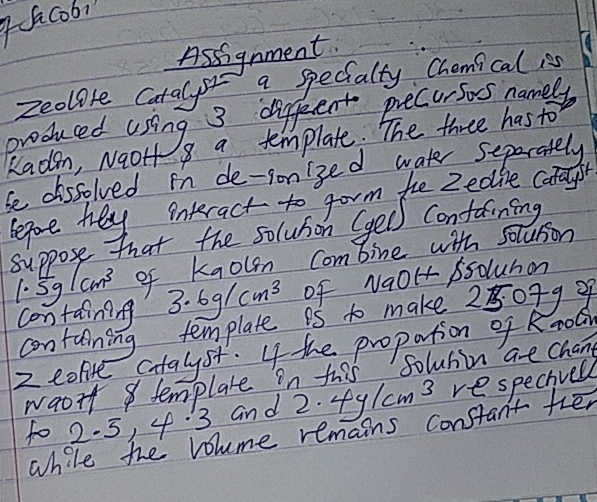 of Jacobi
Assignment.
Zeolite Catalyst a specialty Chemical is
produced using 3 different precursors namely
Kaolin, NaOH & a template. The three has to
be dissolved in de-ionized water separately
before they interact to form the Zeolite Catalyst.
suppose that the solution (gel) containing
1.5g/cm³ of Kaolin combine with solution
containing 3.6g/cm³ of NaOH & solution
containing template is to make 25.07g of
Zeolite catalyst. If the proportion of Kaolin
NaOH & template in this solution are chang
to 2.5, 4.3 and 2.4g/cm³ respectivell
while the volume remains constant then